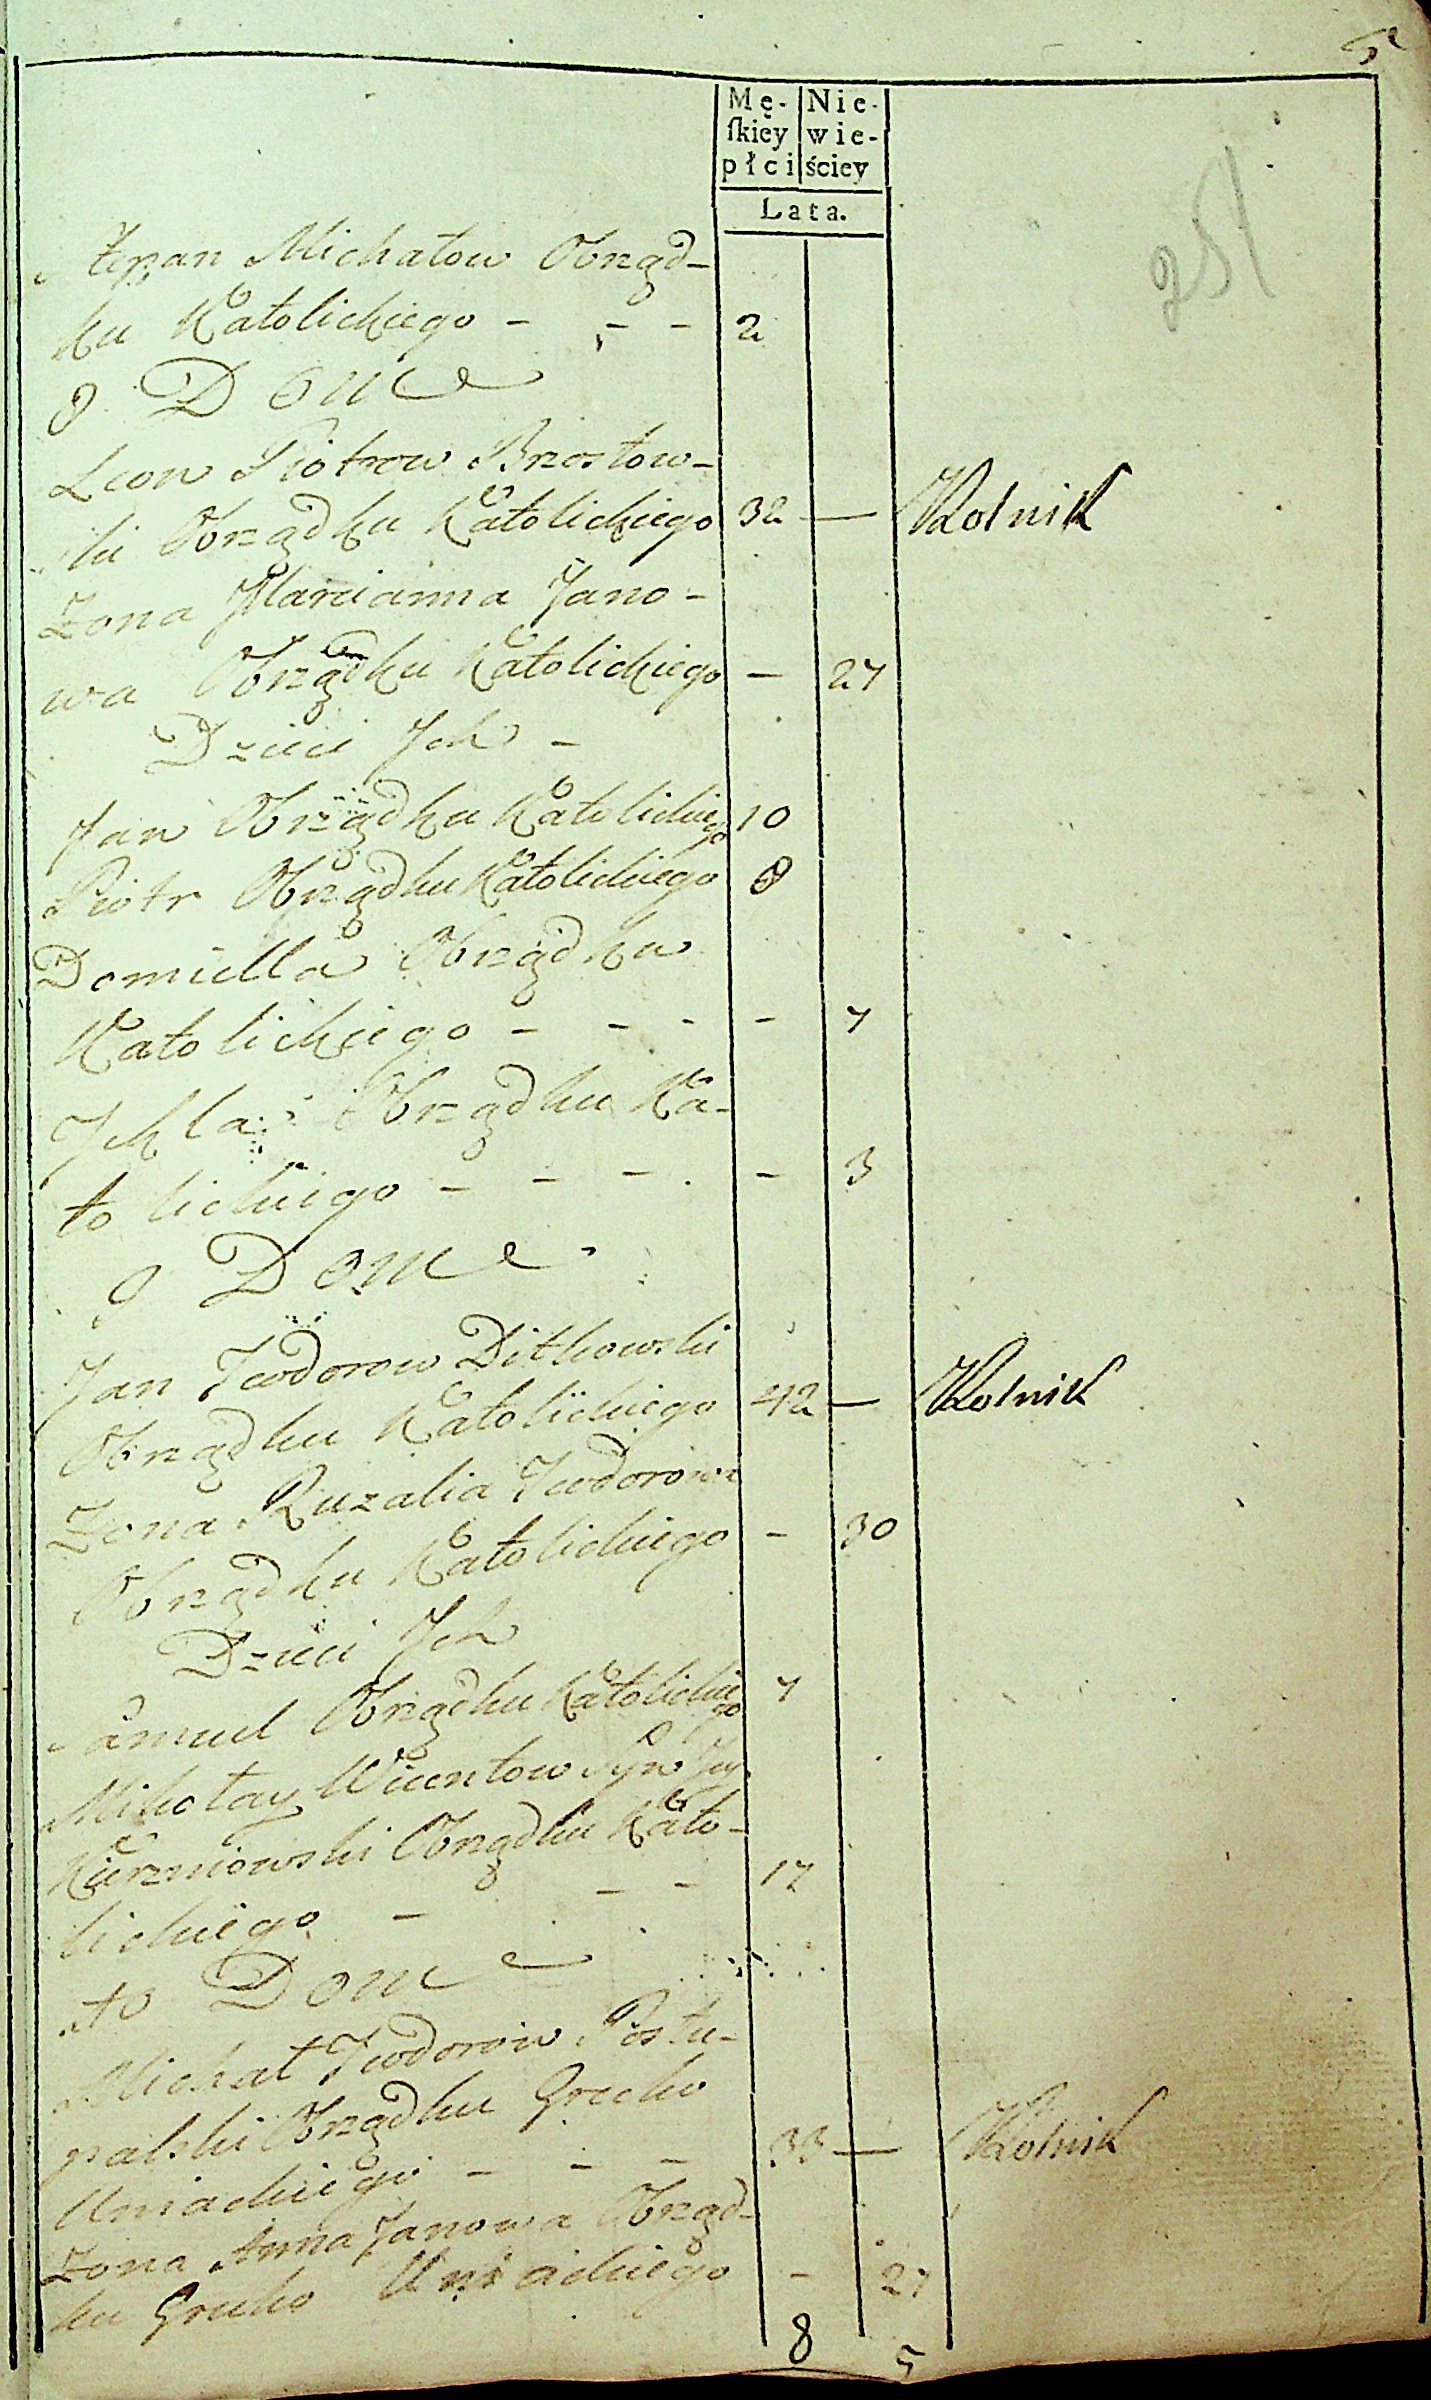 5
Mę- Nie-
ſkiey wie-
płci ściey
Lata.
Stepan Michałow Obrząd-
ku Katolickiego - - - 2
8 Dom
Leon Piotrow Brzostow-
ski Obrządku Katolickiego 32 — Rolnik
Zona Marcianna Jano-
wa Obrządku Katolickiego - 27
Dzieci Jch -
Jan Obrządku Katolickiego 10
Piotr Obrządku Katolickiego 8
Domicella Obrządku
Katolickiego - - - - 7
Tekla Obrządku Ka-
tolickiego - - - - 3
9 Dom
Jan Teodorow Ditkowski
Obrządku Katolickiego 42 — Rolnik
Zona Ruzalia Teodorowa
Obrządku Katolickiego - 30
Dzieci Jch
Samuel Obrządku Katolickiego 7
Mikołay Wicentow Syn
Kurzniowski Obrządku Kato-
lickiego - - - 17
10 Dom
Michał Teodorow Postu-
palski Obrządku Greko
Uniackiego - - - 33 — Rolnik
Zona Anna Janowa Obrząd-
ku Greko Uniackiego - 27
8 5